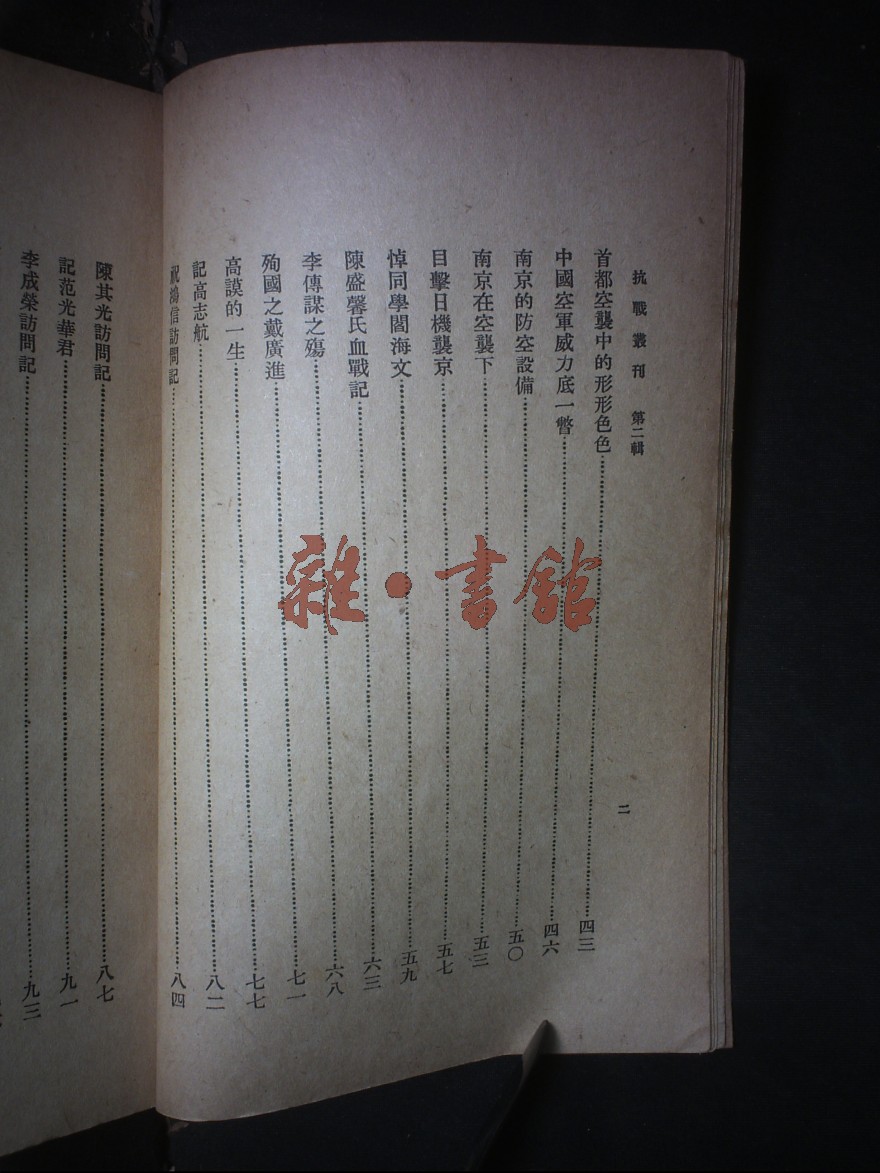 抗戰叢刊 第二輯
二
首都空襲中的形形色色……四三
中國空軍威力底一瞥……四六
南京的防空設備……五〇
南京在空襲下……五三
目擊日機襲京……五七
悼同學閻海文……五九
陳盛馨氏血戰記……六三
李傳謀之殤……六八
殉國之戴廣進……七一
高謨的一生……七七
記高志航……八二
祝鴻信訪問記……八四
陳其光訪問記……八七
記范光華君……九一
李成榮訪問記……九三
雜·書館